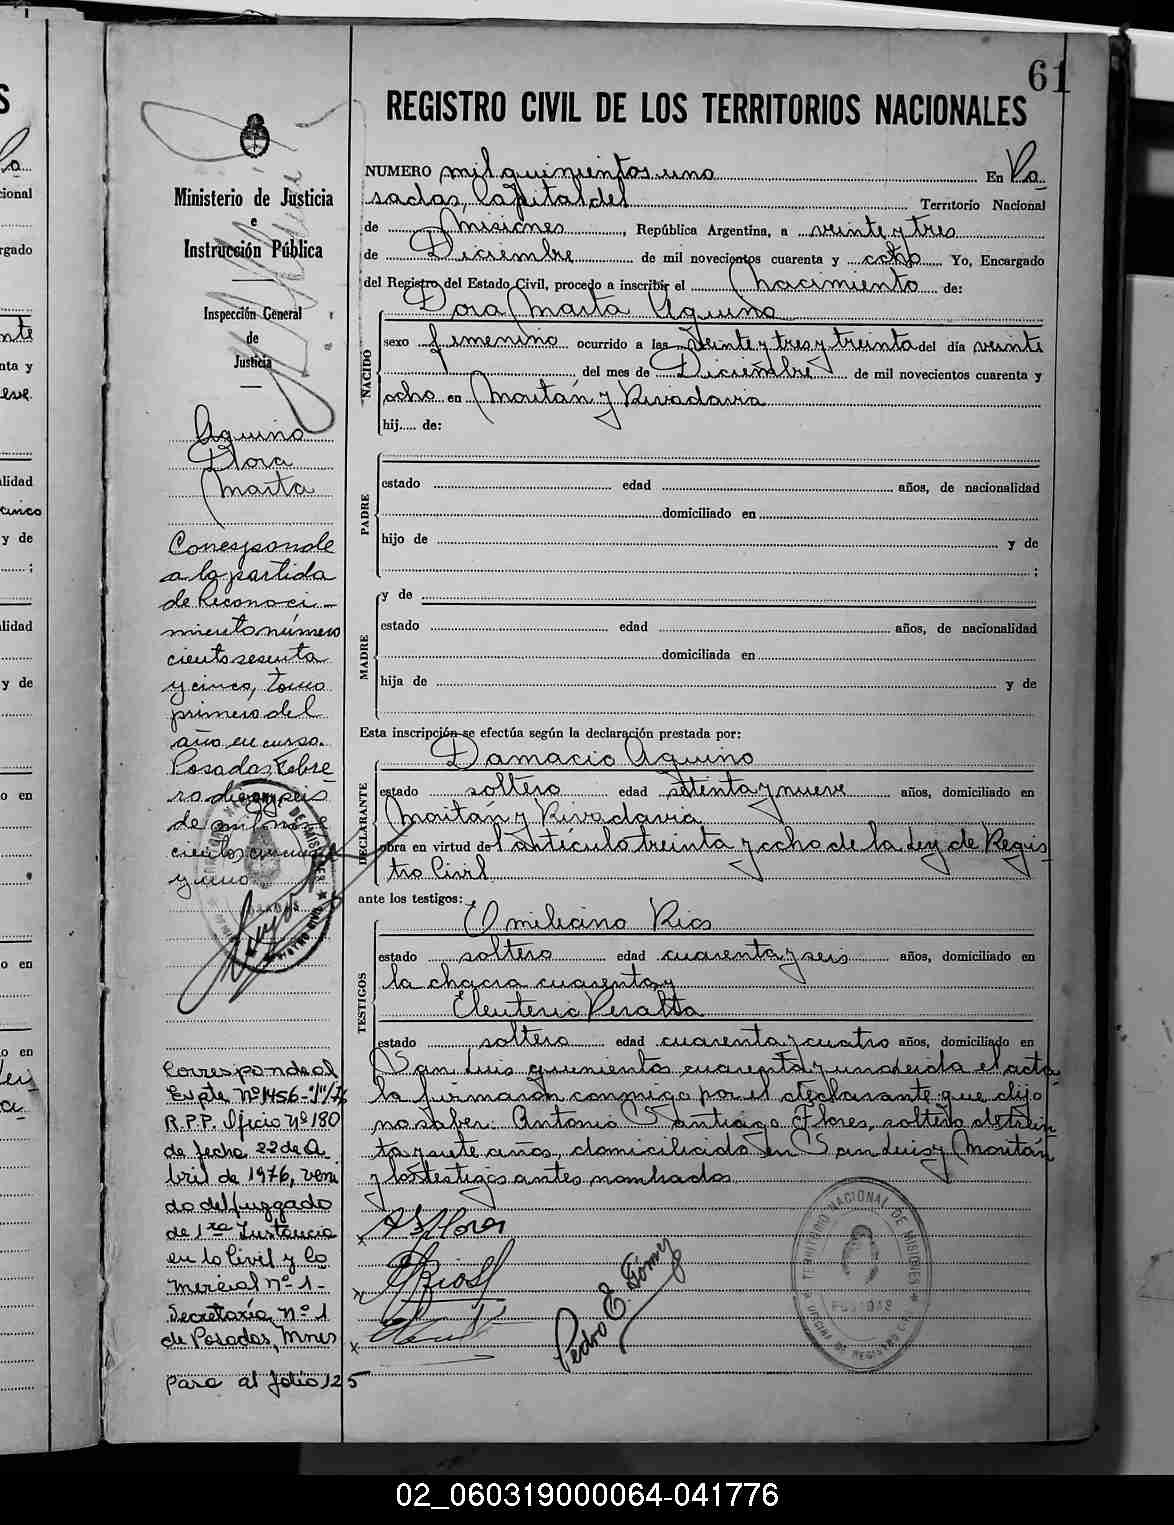 61
REGISTRO CIVIL DE LOS TERRITORIOS NACIONALES
Ministerio de Justicia
e
Instrucción Pública
Inspección General
de
Justicia
Aquino
Dora
Marta
Corresponde
a la partida
de Reconoci-
miento número
ciento sesenta
y cinco, tomo
primero del
año en curso.
Posadas, Febre-
ro dieciseis
de mil nove-
cientos cincuenta
y uno
Corresponde al
Expte Nº 1456-"I"/76
R.P.P. Oficio Nº 180
de fecha 22 de A
bril de 1976, veni
do del juzgado
de 1ra Instancia
en lo Civil y Co
mercial Nº 1-
Secretaría Nº 1
de Posadas, Mnes
pasa al folio 125
NUMERO mil quinientos uno En Po
sadas, Capital del Territorio Nacional
de Misiones, República Argentina, a veinte y tres
de Diciembre de mil novecientos cuarenta y ocho Yo, Encargado
del Registro del Estado Civil, procedo a inscribir el nacimiento de:
Dora Marta Aquino
NACIDO
sexo femenino ocurrido a las veinte y tres y treinta del día veinte
del mes de Diciembre de mil novecientos cuarenta y
ocho en Moritán y Rivadavia
hij..... de:
PADRE
estado edad años, de nacionalidad
domiciliado en
hijo de y de
;
MADRE
y de
estado edad años, de nacionalidad
domiciliada en
hija de y de
Esta inscripción se efectúa según la declaración prestada por:
Damacio Aquino
DECLARANTE
estado soltero edad setenta y nueve años, domiciliado en
Moritan y Rivadavia
obra en virtud del artículo treinta y ocho de la Ley de Regis-
tro Civil
ante los testigos:
Emiliano Rios
TESTIGOS
estado soltero edad cuarenta y seis años, domiciliado en
la chacra cuarenta y
Eleuterio Peralta
estado soltero edad cuarenta y cuatro años, domiciliado en
San Luis quinientos cuarenta y uno Leida el acta
la firmaron conmigo por el declarante que dijo
no saber: Antonio Santiago Flores, soltero de trein
ta y siete años, domiciliado en San Luis y Moritán
y los testigos antes nombrados
A S Flores
E Rios
Pedro E. Gómez
TERRITORIO NACIONAL DE MISIONES
POSADAS
OFICINA DE REGISTRO CIVIL
02_060319000064-041776